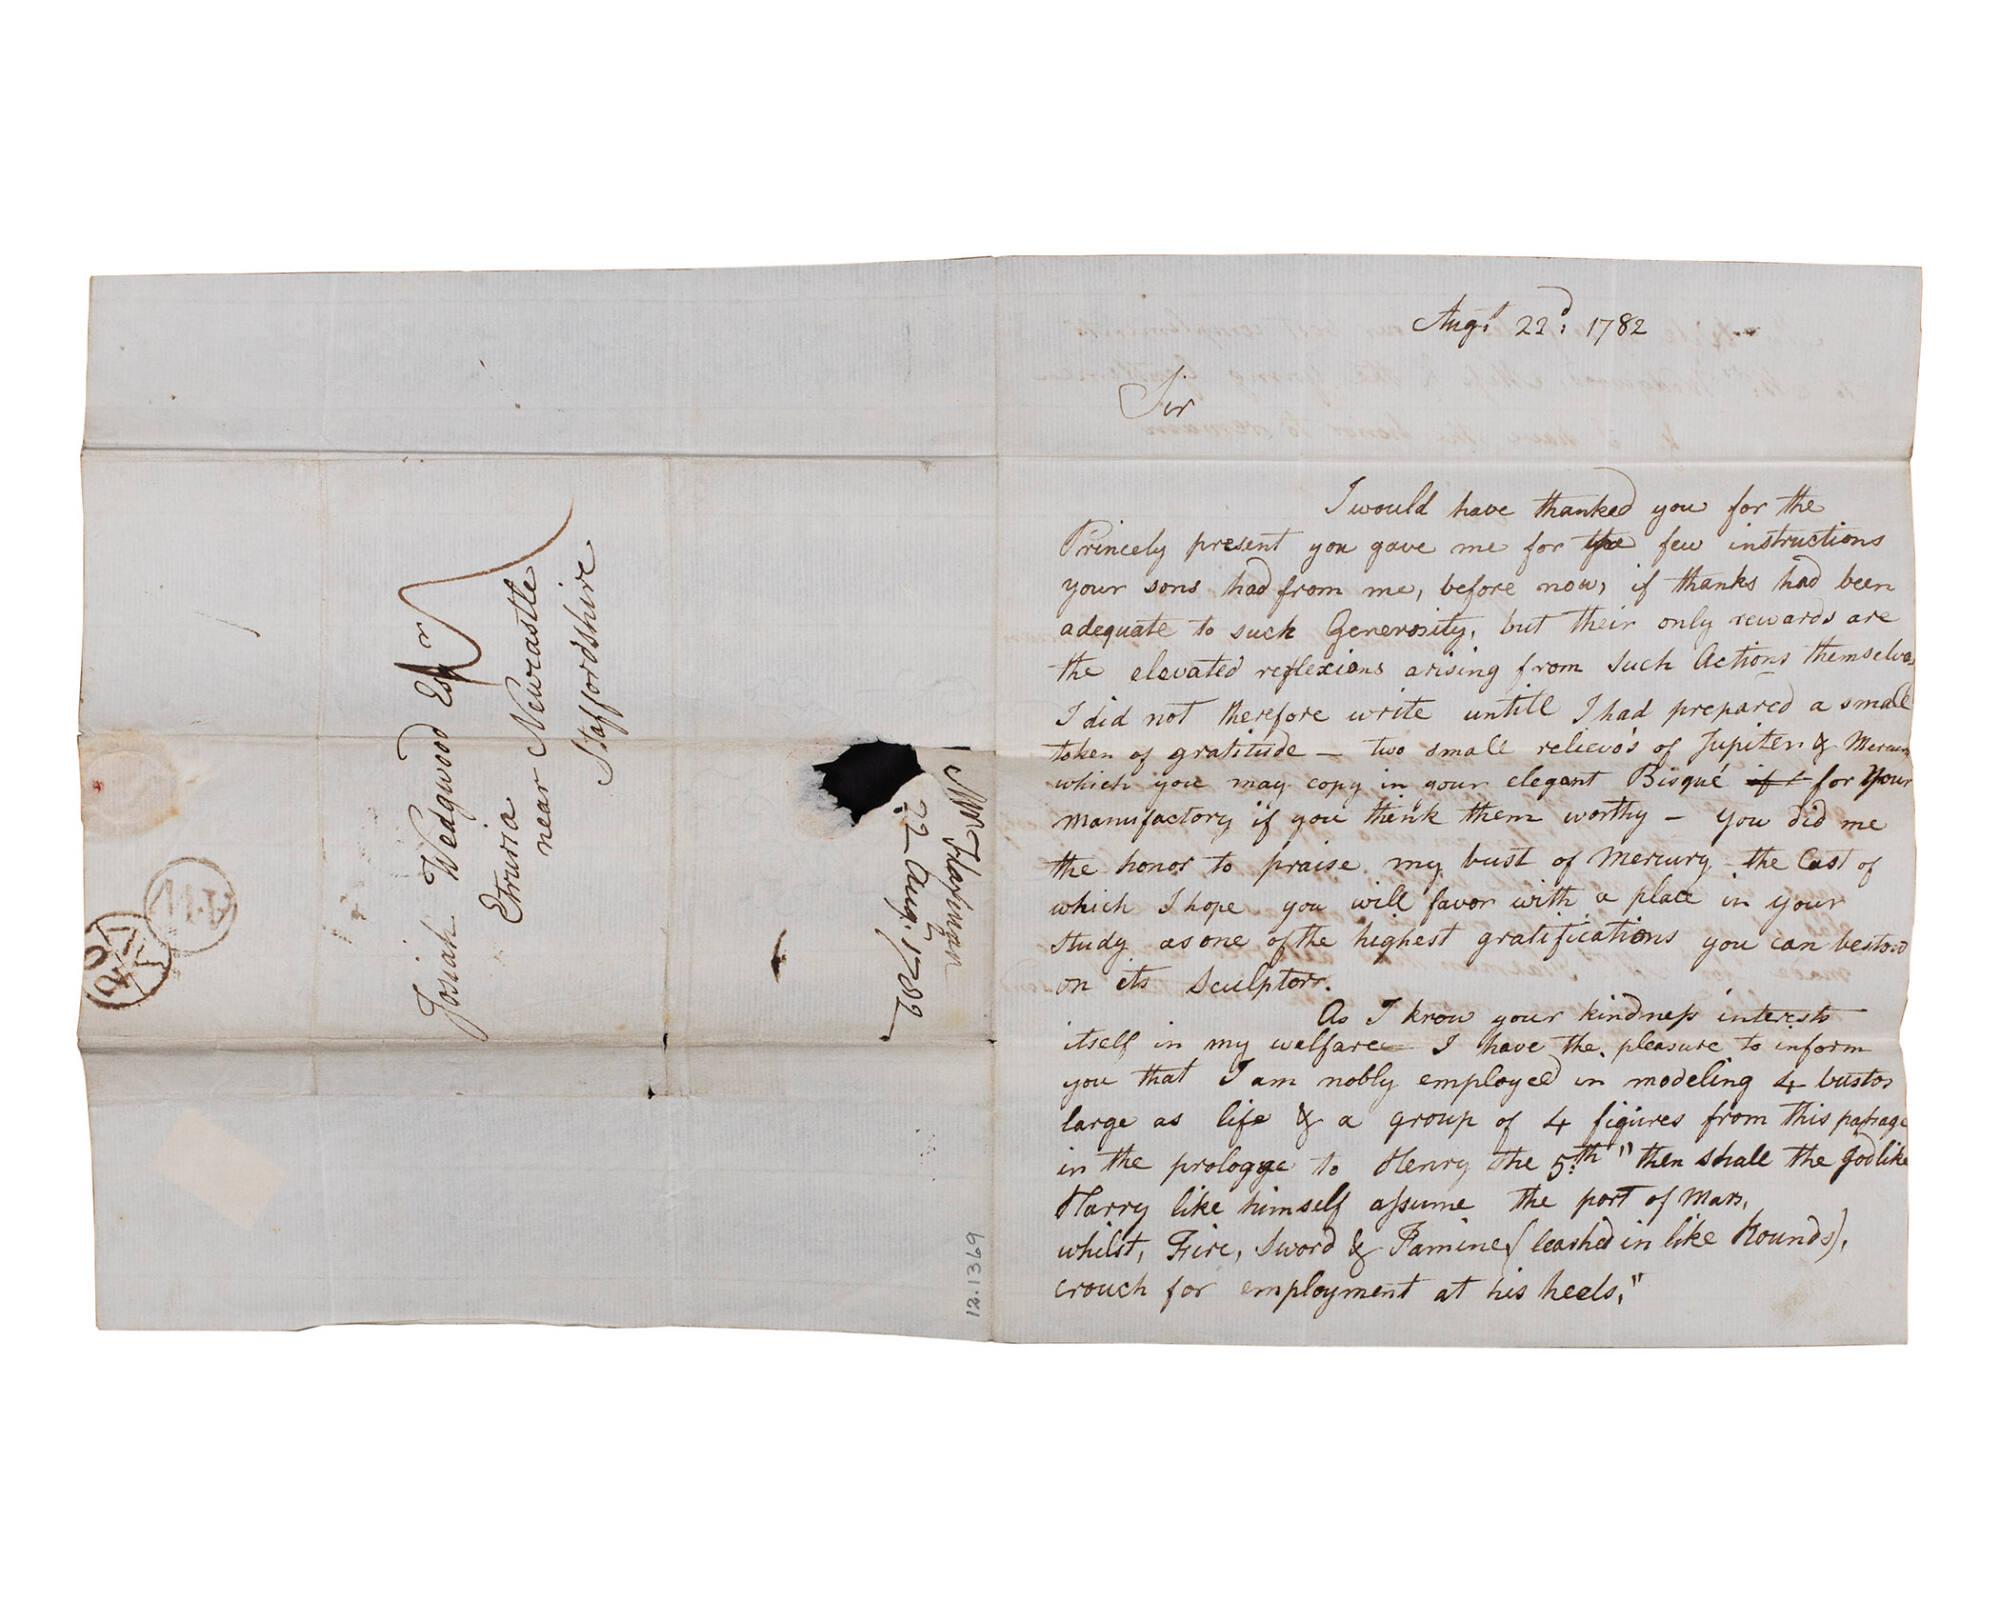 Josiah Wedgwood Esqr
Etruria
near Newcastle
Staffordshire
Mr Flaxman
22 Aug. 1782
12.1369
Augt 22d: 1782
Sir
I would have thanked you for the
Princely present you gave me for the few instructions
your sons had from me, before now, if thanks had been
adequate to such Generosity, but their only rewards are
the elevated reflexions arising from such Actions themselves
I did not therefore write untill I had prepared a small
token of gratitude — two small relievo's of Jupiter & Mercury
which you may copy in your elegant Bisqué if for your
manufactory if you think them worthy — you did me
the honor to praise my bust of Mercury the Cast of
which I hope you will favor with a place in your
study as one of the highest gratifications you can bestow
on its Sculptor.
As I know your kindness interests
itself in my welfare I have the pleasure to inform
you that I am nobly employed in modeling 4 bustos
large as life & a group of 4 figures from this passage
in the prologue to Henry the 5th "then shall the Godlike
Harry like himself assume the port of Mars,
whilst, Fire, Sword & Famine (leashed in like Hounds),
crouch for employment at his heels,"